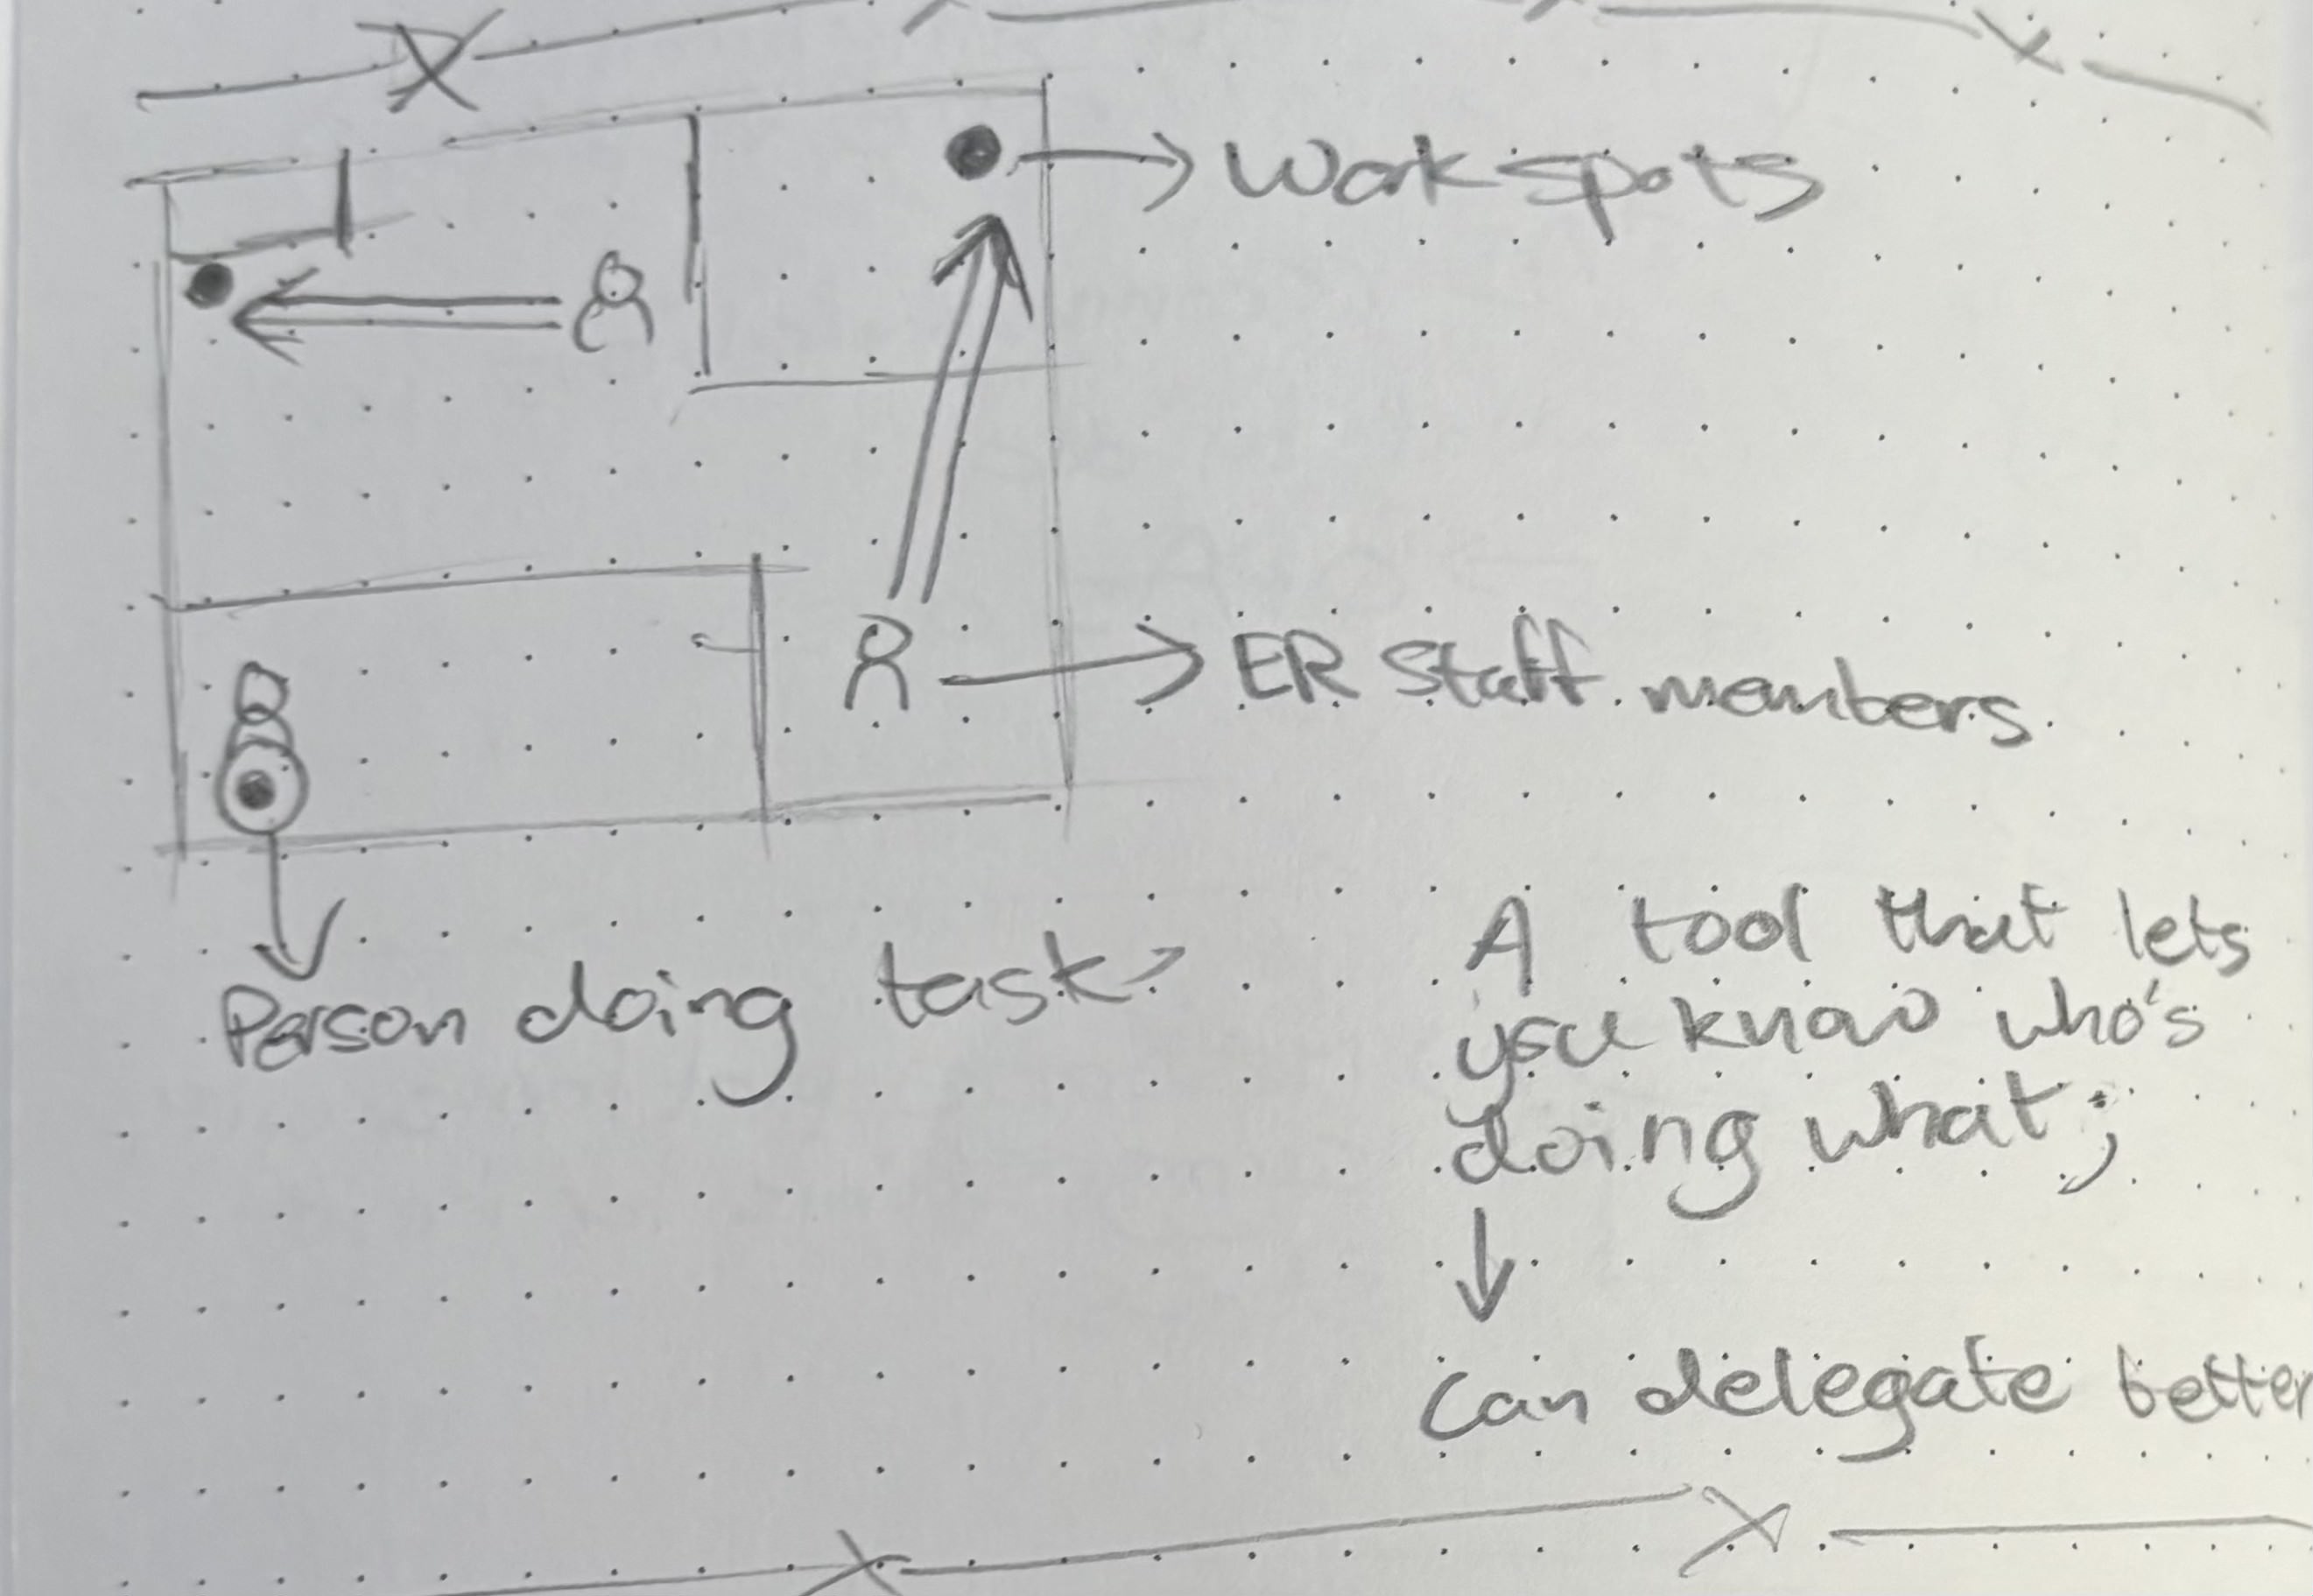 Work spots
ER Staff members
Person doing task
A tool that lets
you know who's
doing what;
Can delegate better